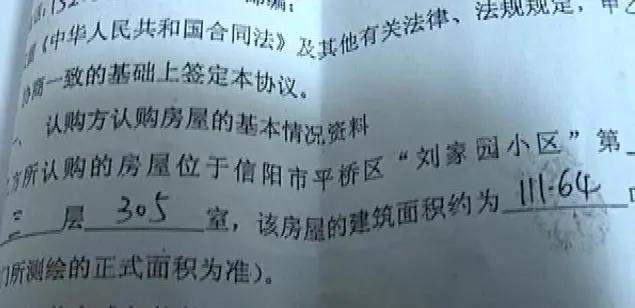 《中华人民共和国合同法》及其他有关法律、法规规定，甲乙
协商一致的基础上签定本协议。
、认购方认购房屋的基本情况资料
方所认购的房屋位于信阳市平桥区“刘家园小区”第
三 层 305 室，该房屋的建筑面积约为 111.64
门所测绘的正式面积为准）。